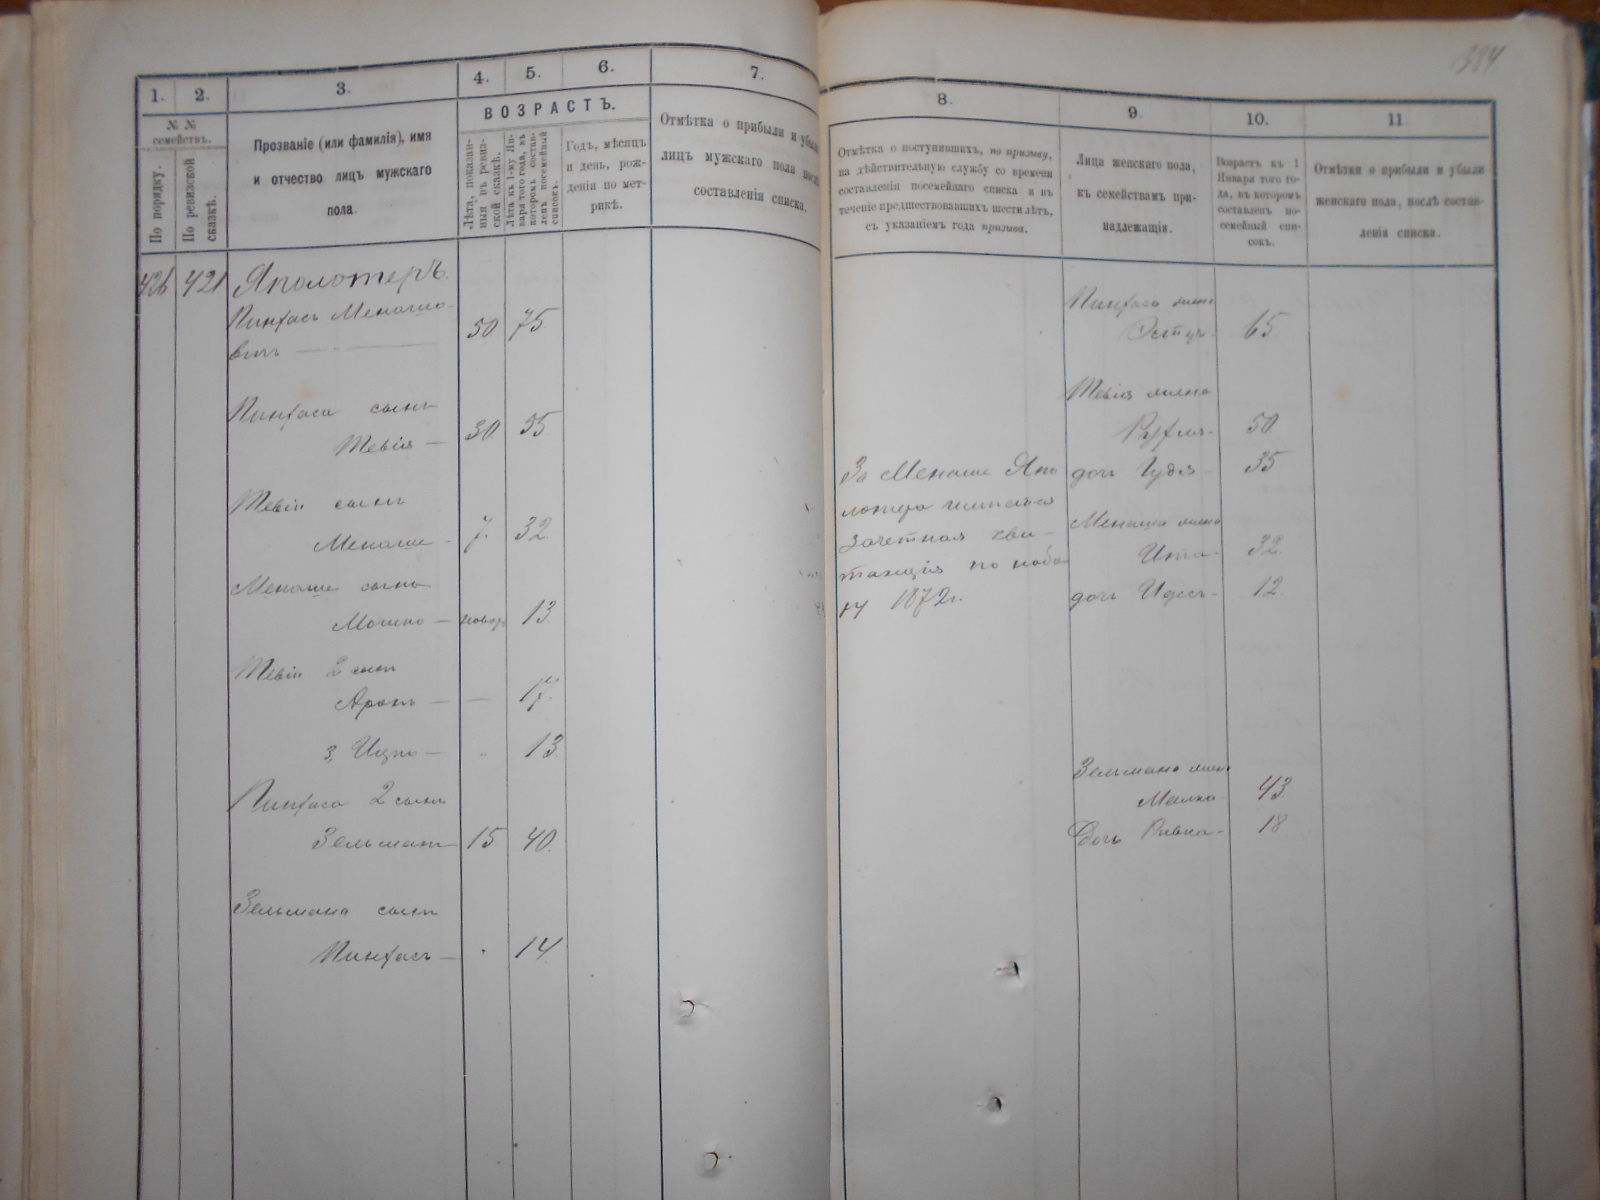 384
1. 2. 3. 4. 5. 6. 7.
№ № семействъ.
По порядку.
По ревизской сказкѣ.
Прозваніе (или фамилія), имя
и отчество лицъ мужскаго
пола.
ВОЗРАСТЪ.
Лѣта, показан-
ныя въ ревиз-
ской сказкѣ.
Лѣта къ 1-му Ян-
варя того года, въ
которомъ состав-
ленъ посемейный
списокъ.
Годъ, мѣсяцъ
и день, рож-
денія по мет-
рикѣ.
Отмѣтка о прибыли и убыли
лицъ мужскаго пола послѣ
составленія списка.
426 421 Яполотеръ
Пинхасъ Менашо-
вичъ — 50 75
Пинхаса сынъ
Тевія — 30 55
Тевіи сынъ
Менаше - 7. 32
Менаше сынъ
Мошко — новор 13
Тевіи 2 сынъ
Аронъ — — 17.
3, Ицко — 13
Пинхаса 2 сынъ
Зельманъ 15 40
Зельмана сынъ
Пинхасъ — 14
8. 9. 10. 11
Отмѣтка о поступившихъ, по призыву,
на дѣйствительную службу со времени
составленія посемейнаго списка и въ
теченіе предшествовавшихъ шести лѣтъ,
съ указаніемъ года призыва.
Лица женскаго пола,
къ семействамъ при-
надлежащія.
Возрастъ къ 1
Января того го-
да, въ которомъ
составленъ по-
семейный спи-
сокъ.
Отмѣтки о прибыли и убыли
женскаго пола, послѣ состав-
ленія списка.
Пинхаса жена
Эстеръ - 65
Тевія жена
Рухля - 50
дочь Гудя 35
За Менаше Япо
лотера числится
зачетная кви-
танція по набо
ру 1872г.
Менаша жена
Ита - 32
дочь Идесъ - 12
Зельмана жена
Малка 43
Дочь Ривка - 18